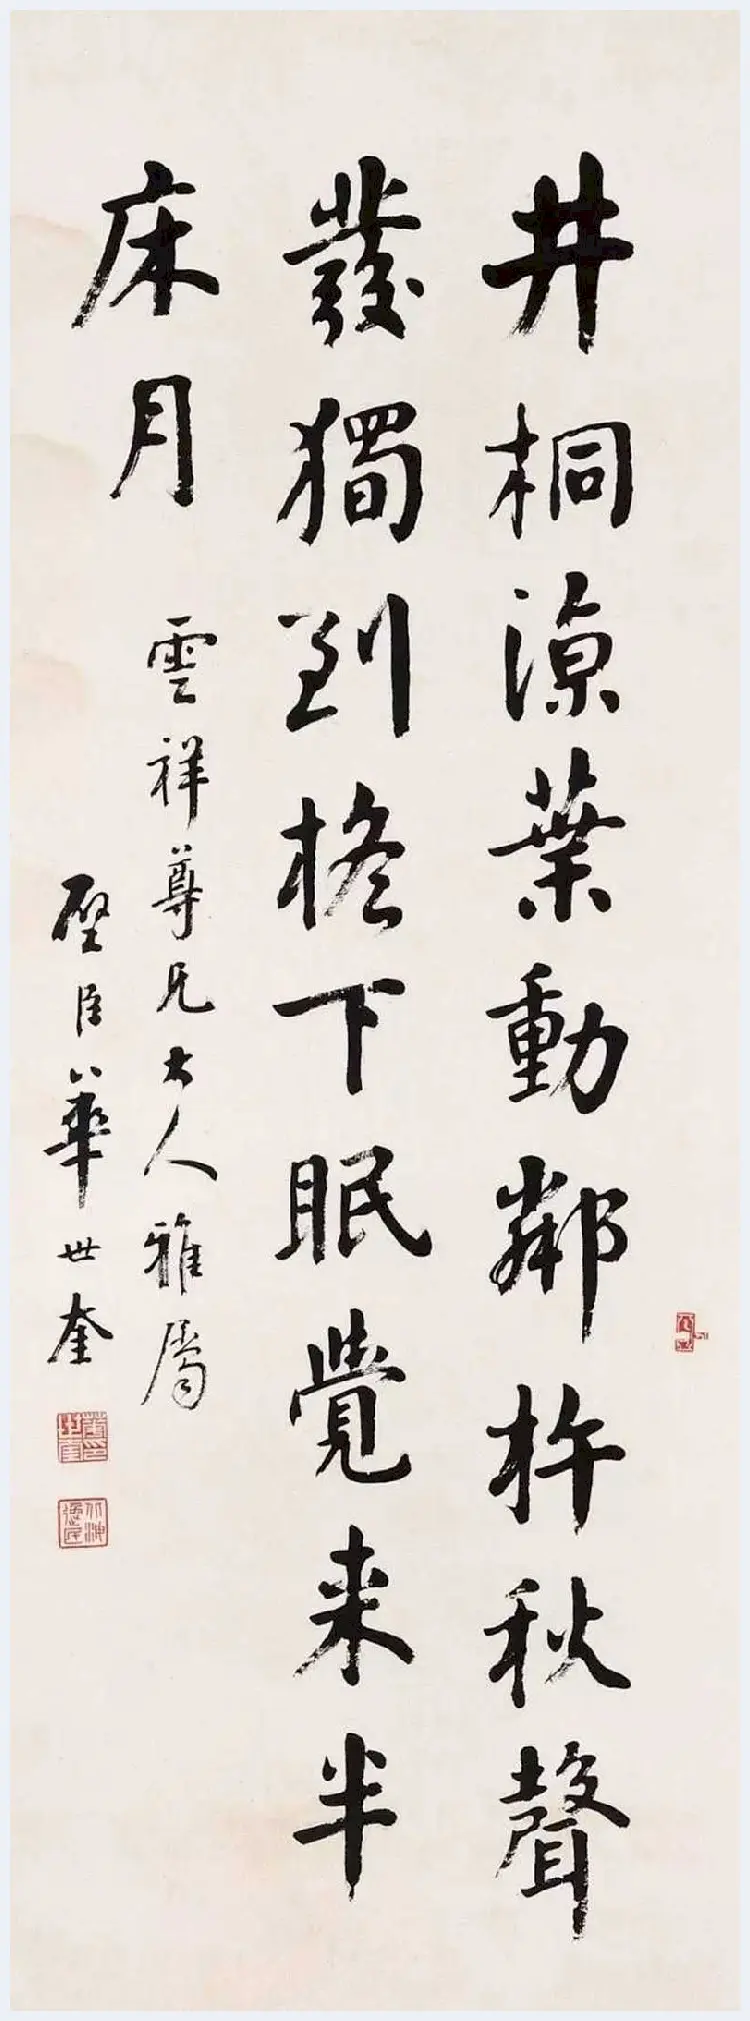 井桐涼葉動鄰杵秋聲
發獨到檐下眠覺来半
床月
雲祥尊兄大人雅屬
璧臣華世奎